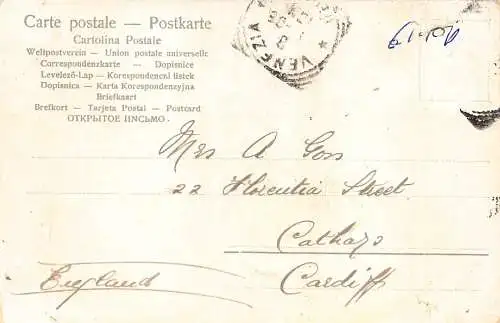 Carte postale — Postkarte
Cartolina Postale
Weltpostverein — Union postale universelle
Correspondenzkarte — Dopisnice
Levelező-Lap — Korespondencni listek
Dopisnica — Karta Korespondenzyjna
Briefkaart
Brefkort — Tarjeta Postal — Postcard
ОТКРЫТОЕ ПИСЬМО.
VENEZIA
Mrs A Goss
22 Florentia Street
Cathays
Cardiff
England